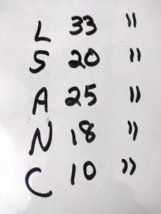 L 33 "
S 20 "
A 25 "
N 18 "
C 10 "